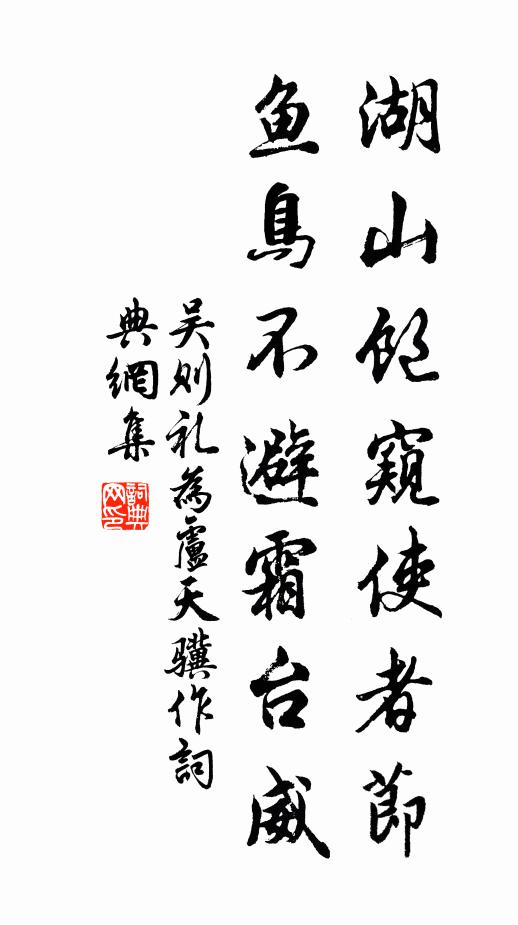 湖山饱窥使者節
鱼鳥不避霜台威
吴则礼為盧天骥作詞
典網集
詞典网印